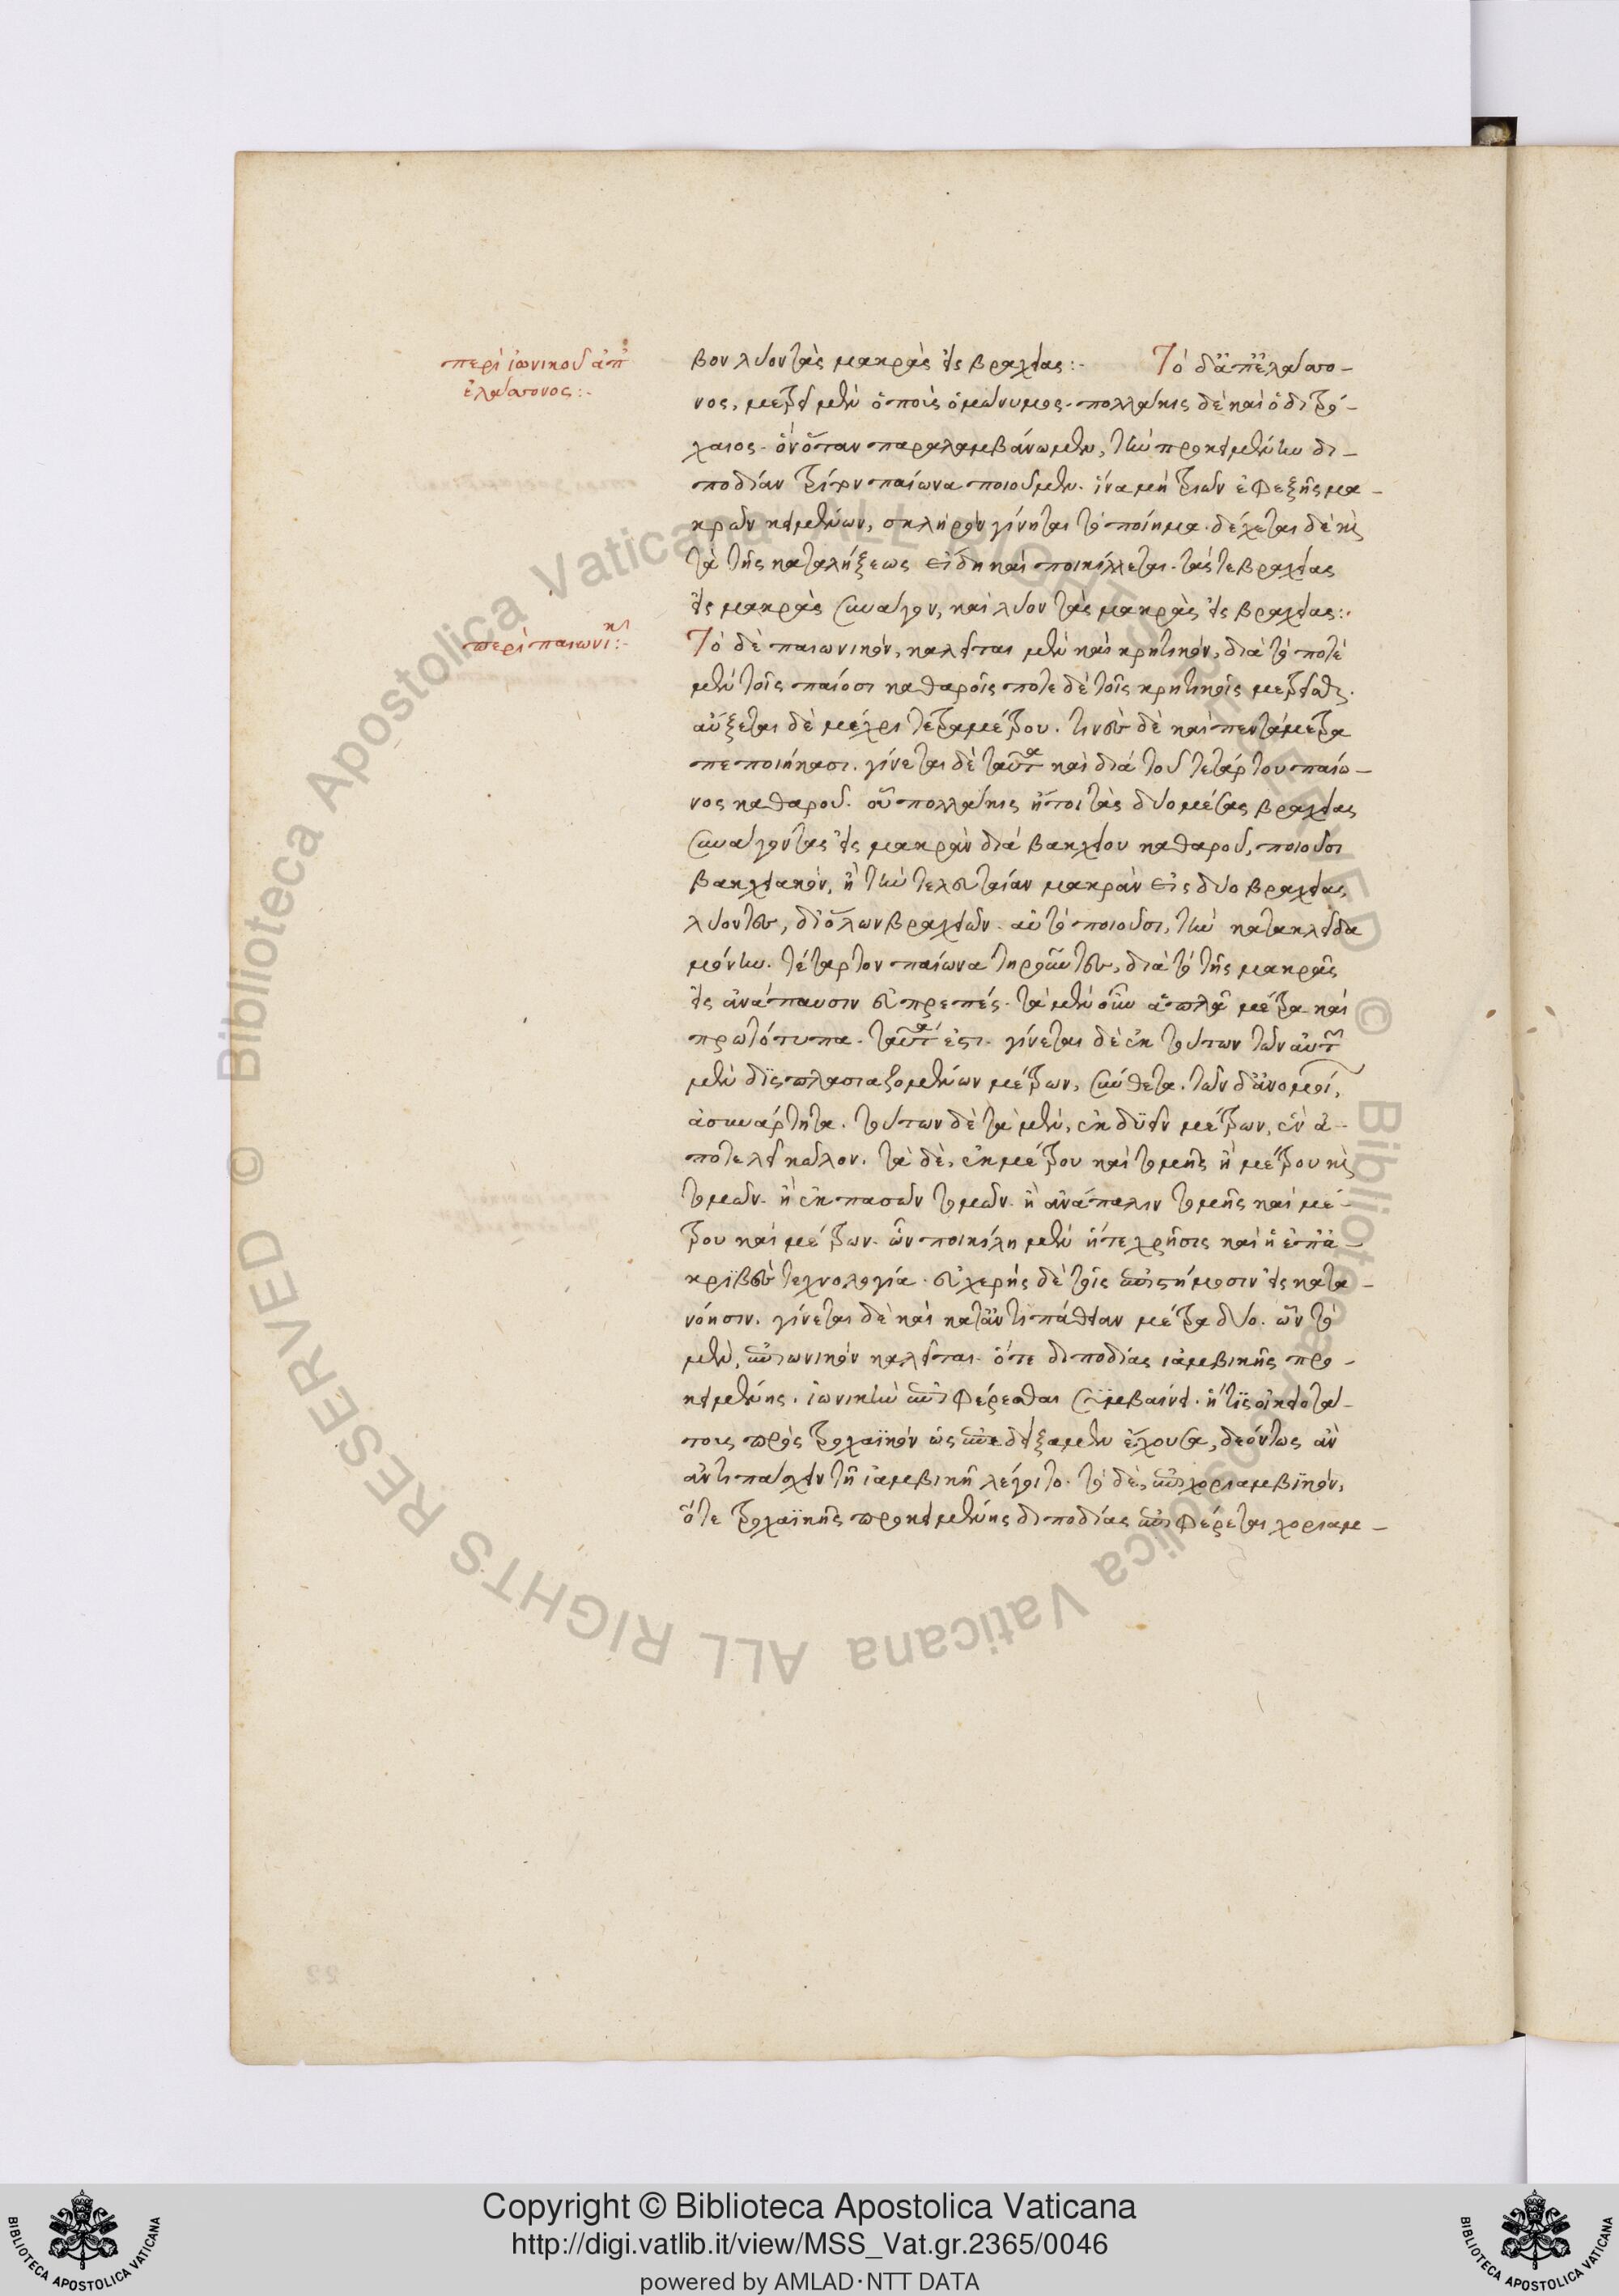 περὶ ἰωνικοῦ ἀπ'
ἐλάσσονος:-
βον λύον τὰς μακρὰς εἰς βραχείας:- Τὸ δ' ἀπ' ἐλάσσο-
νος, μετρεῖ μὲν ὁ ποὺς ὁμώνυμος. πολλάκις δὲ καὶ ὁ διτρό-
χαιος. ὃν ὅταν παραλαμβάνωμεν, τὴν προκειμένην δι-
ποδίαν τρίτον παίωνα ποιοῦμεν. ἵνα μὴ τριῶν ἐφεξῆς μα-
κρῶν κειμένων, σκληρὸν γίνηται τὸ ποίημα. δέχεται δὲ καὶ
τὰ τῆς καταλήξεως εἴδη καὶ ποικίλλεται. τάς τε βραχείας
εἰς μακρὰς συνάγον, καὶ λύον τὰς μακρὰς εἰς βραχείας:-
περὶ παιωνικ:-
Τὸ δὲ παιωνικὸν, καλεῖται μὲν καὶ κρητικὸν, διὰ τὸ ποτὲ
μὲν τοῖς παίοσι καθαροῖς ποτὲ δὲ τοῖς κρητικοῖς μετρεῖσθαι.
αὔξεται δὲ μέχρι τετραμέτρου. τινὲς δὲ καὶ πεντάμετρα
πεποιήκασι. γίνεται δὲ ταῦτα καὶ διὰ τοῦ τετάρτου παίω-
νος καθαροῦ. οὗ πολλάκις ἤτοι τὰς δύο μέσας βραχείας
συνάγοντας εἰς μακρὰν διὰ βακχείου καθαροῦ, ποιοῦσι
βακχειακὸν, ἢ τὴν τελευταίαν μακρὰν εἰς δύο βραχείας
λύοντες, δι' ὅλων βραχειῶν αὐτὸ ποιοῦσι, τὴν κατακλεῖδα
μόνην. τέταρτον παίωνα τηροῦντες, διὰ τὸ τῆς μακρᾶς
εἰς ἀνάπαυσιν εὐπρεπές. τὰ μὲν οὖν ἁπλᾶ μέτρα καὶ
πρωτότυπα. ταῦτά ἐστι. γίνεται δὲ ἐκ τούτων τῶν αὐτῶν
μὲν δὶς πλασιαζομένων μέτρων, σύνθετα. τῶν δ' ἀνομοί,
ἀσυνάρτητα. τούτων δὲ τὰ μὲν, ἐκ δυεῖν μέτρων, ἓν ἀ-
ποτελεῖ κῶλον. τὰ δὲ, ἐκ μέτρου καὶ τομῆς ἢ μέτρου καὶ
τομῶν. ἢ ἐκ πασῶν τομῶν. ἢ ἀνάπαλιν τομῆς καὶ μέ-
τρου καὶ μέτρων. ὧν ποικίλη μὲν ἥ τε χρῆσις καὶ ἡ ἐπ' ἀ-
κριβὲς τεχνολογία. εὐχερὴς δὲ τοῖς ἐπιστήμοσιν εἰς κατα-
νόησιν. γίνεται δὲ καὶ κατ' ἀντιπάθειαν μέτρα δύο. ὧν τὸ
μὲν, ἐπιωνικὸν καλεῖται. ὅτε διποδίας ἰαμβικῆς προ-
κειμένης. ἰωνικὴν ἐπιφέρεσθαι συμβαίνει. ἥτις οἰκειοτά-
τους πρὸς τροχαϊκὸν ὡς ἐπεδείξαμεν ἔχουσα, δεόντως ἂν
ἀντιπάσχειν τῇ ἰαμβικῇ λέγοιτο. τὸ δὲ, ἐπιχοριαμβικὸν,
ὅτε τροχαϊκῆς προκειμένης διποδίας ἐπιφέρεται χοριαμ-
Copyright © Biblioteca Apostolica Vaticana
http://digi.vatlib.it/view/MSS_Vat.gr.2365/0046
powered by AMLAD·NTT DATA
BIBLIOTECA APOSTOLICA VATICANA
BIBLIOTECA APOSTOLICA VATICANA
© Biblioteca Apostolica Vaticana ALL RIGHTS RESERVED © Biblioteca Apostolica Vaticana ALL RIGHTS RESERVED